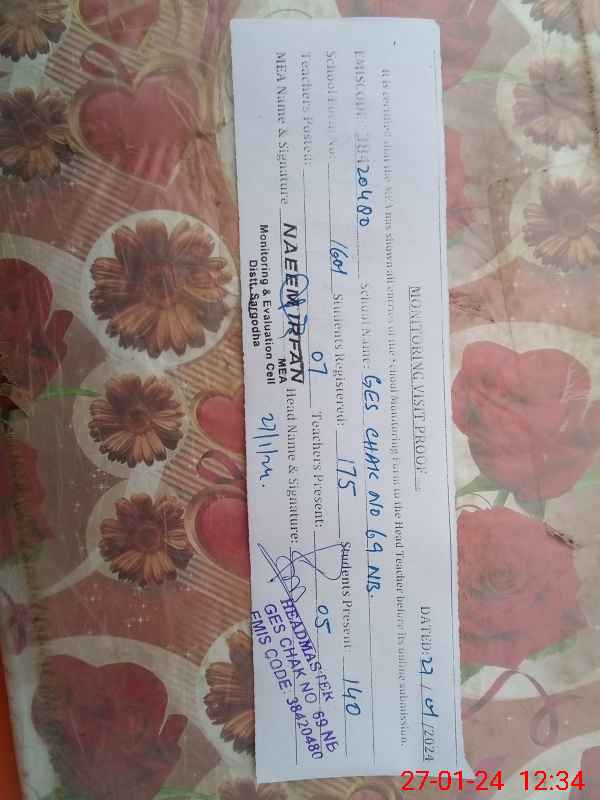 MONITORING VISIT PROOF
DATED: 27 / 01 /2024
It is certified that the MEA has shown all entries of the School Monitoring Form to the Head Teacher before its online submission.
EMISCODE: 38420480 School Name: GES CHAK NO 69 NB.
School Form No: 1601 Students Registered: 175 Students Present: 140
Teachers Posted: 07 Teachers Present: 05
MEA Name & Signature NAEEM IRFAN Head Name & Signature:
MEA
Monitoring & Evaluation Cell
Distt. Sargodha
HEADMASTER
GES CHAK NO 69 Nb
EMIS CODE: 38420480
27-01-24 12:34